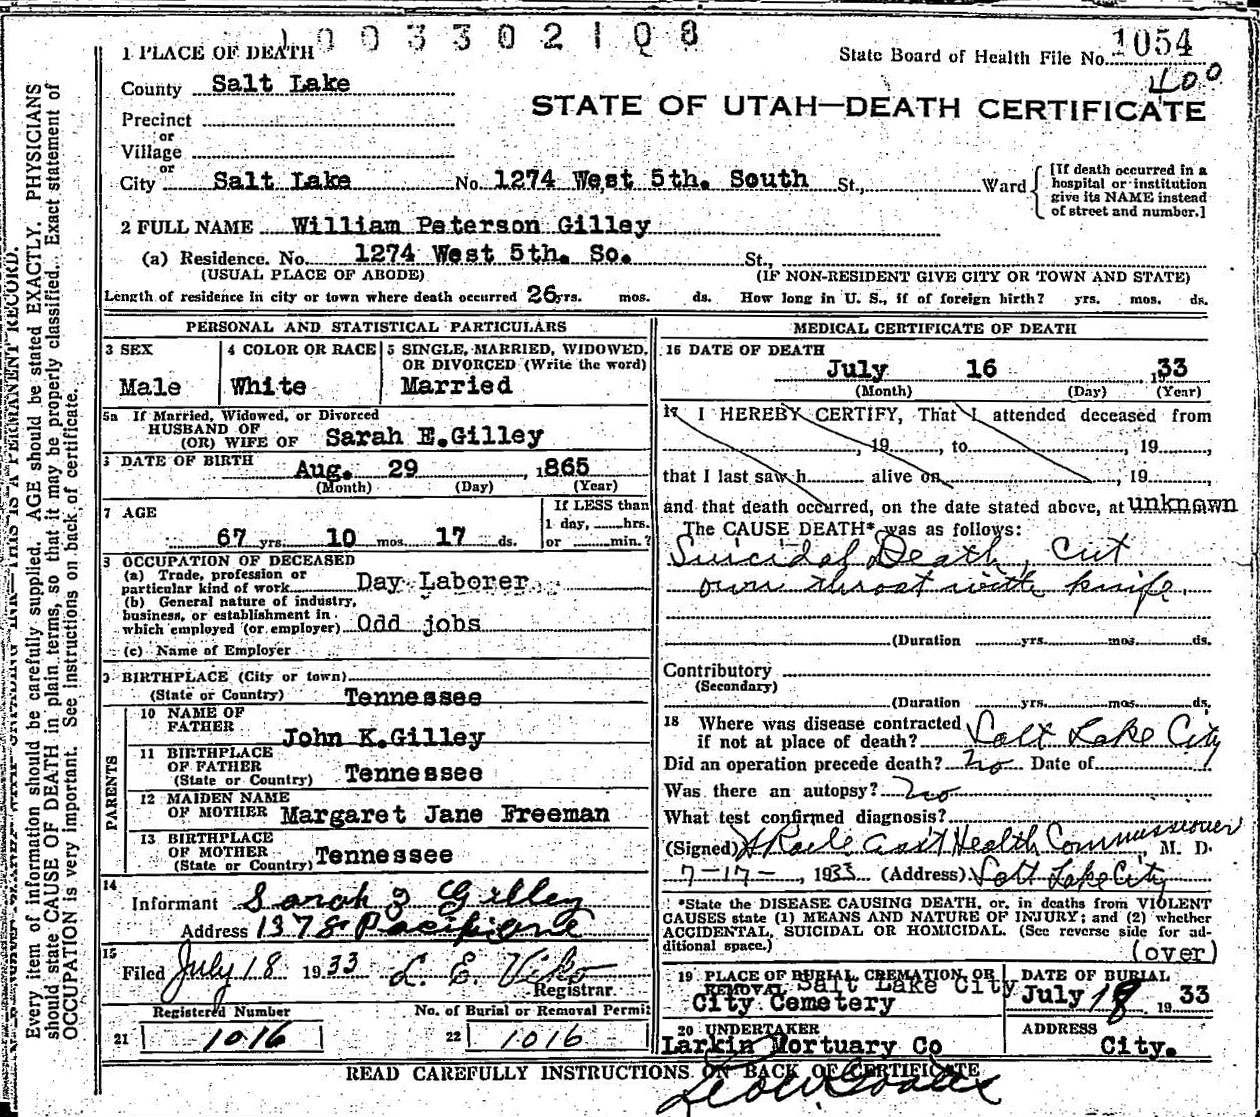 1003302108
1 PLACE OF DEATH
State Board of Health File No. 1054
400
County Salt Lake
STATE OF UTAH—DEATH CERTIFICATE
Precinct
or
Village
or
City Salt Lake No. 1274 West 5th. South St., Ward [If death occurred in a hospital or institution give its NAME instead of street and number.]
2 FULL NAME William Peterson Gilley
(a) Residence. No. 1274 West 5th. So. St.,
(USUAL PLACE OF ABODE) (IF NON-RESIDENT GIVE CITY OR TOWN AND STATE)
Length of residence in city or town where death occurred 26 yrs. mos. ds. How long in U. S., if of foreign birth? yrs. mos. ds.
PERSONAL AND STATISTICAL PARTICULARS
3 SEX
Male
4 COLOR OR RACE
White
5 SINGLE, MARRIED, WIDOWED,
OR DIVORCED (Write the word)
Married
5a If Married, Widowed, or Divorced
HUSBAND OF
(OR) WIFE OF Sarah E.Gilley
DATE OF BIRTH
Aug. 29 1865
(Month) (Day) (Year)
7 AGE
67 yrs. 10 mos. 17 ds.
If LESS than
1 day, hrs.
or min.?
8 OCCUPATION OF DECEASED
(a) Trade, profession or
particular kind of work Day Laborer
(b) General nature of industry,
business, or establishment in
which employed (or employer) Odd jobs
(c) Name of Employer
9 BIRTHPLACE (City or town)
(State or Country) Tennessee
PARENTS
10 NAME OF
FATHER
John K.Gilley
11 BIRTHPLACE
OF FATHER
(State or Country) Tennessee
12 MAIDEN NAME
OF MOTHER Margaret Jane Freeman
13 BIRTHPLACE
OF MOTHER
(State or Country) Tennessee
14
Informant Sarah E Gilley
Address 1378 Pacific Ave
15
Filed July 18 1933 L. E. Viko
Registrar.
Registered Number
21 1016
No. of Burial or Removal Permit
22 1016
MEDICAL CERTIFICATE OF DEATH
16 DATE OF DEATH
July 16 1933
(Month) (Day) (Year)
17 I HEREBY CERTIFY, That I attended deceased from
, 19 , to , 19 ,
that I last saw h alive on , 19 ,
and that death occurred, on the date stated above, at unknown
The CAUSE DEATH* was as follows:
Suicidal Death, Cut
own throat with knife.
(Duration yrs. mos. ds.
Contributory
(Secondary)
(Duration yrs. mos. ds.
18 Where was disease contracted
if not at place of death? Salt Lake City
Did an operation precede death? no Date of
Was there an autopsy? no
What test confirmed diagnosis?
(Signed) Ass't Health Commissioner M. D.
7-17-, 1933 (Address) Salt Lake City
*State the DISEASE CAUSING DEATH, or, in deaths from VIOLENT
CAUSES state (1) MEANS AND NATURE OF INJURY; and (2) whether
ACCIDENTAL, SUICIDAL OR HOMICIDAL. (See reverse side for ad-
ditional space.)
(over)
19 PLACE OF BURIAL CREMATION, OR
REMOVAL Salt Lake City
City Cemetery
DATE OF BURIAL
July 18 1933
20 UNDERTAKER
Larkin Mortuary Co
ADDRESS
City.
READ CAREFULLY INSTRUCTIONS ON BACK OF CERTIFICATE
THIS IS A PERMANENT RECORD.
Every item of information should be carefully supplied. AGE should be stated EXACTLY. PHYSICIANS
should state CAUSE OF DEATH in plain terms, so that it may be properly classified. Exact statement of
OCCUPATION is very important. See instructions on back of certificate.